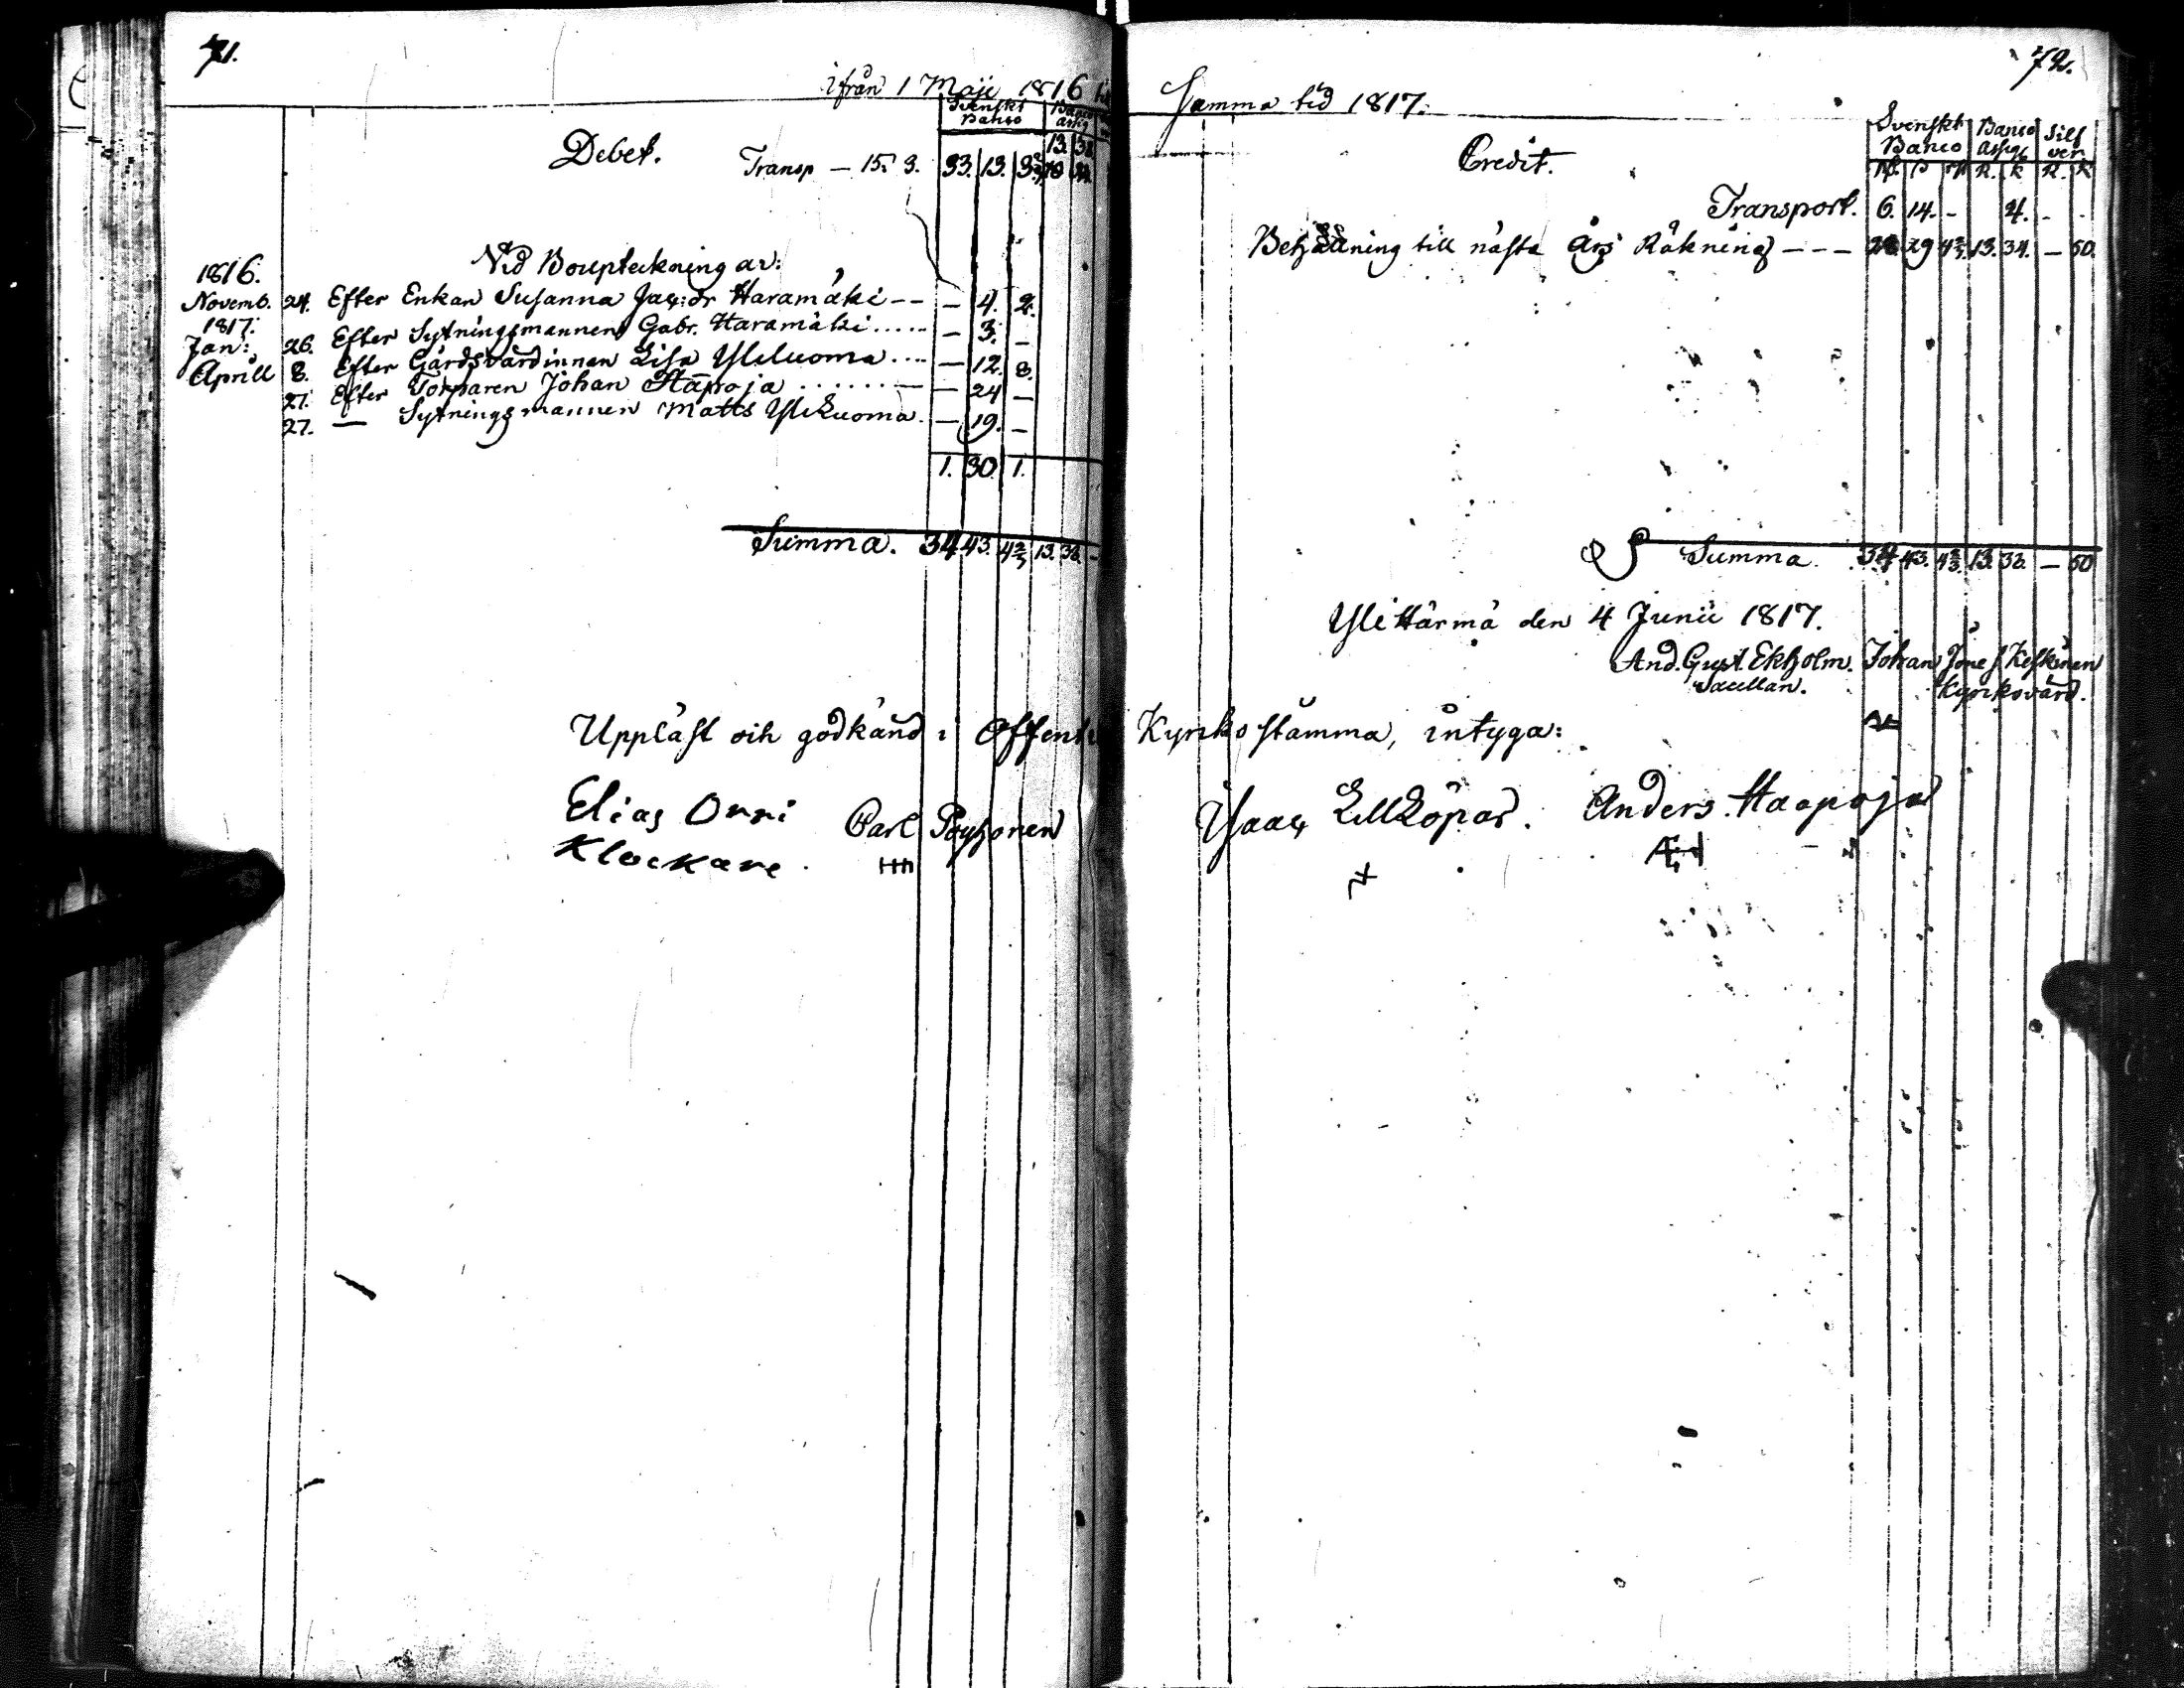 71.
ifrån 1 Maji 1816 til
Svenskt Banco
Banco assig
13. 38
Debet.
Transp — 15. 3. 33. 13. 3 2/3
Vid Boupteckningar:
1816.
Novemb. 24. Efter Enkan Susanna Jac:dr Haramäki -- — 4. 2.
1817.
Jan: 26. Efter Sytningsmannen Gabr. Haramäki ..... — 3. —
Aprill 8. Efter Gårdsvärdinnan Lisa Yliluoma .... — 12. 8.
27. Efter Torparen Johan Hapoja ....... — 24 —
27. — Sytningsmannen Matts Yliluoma. — 19. —
1. 30. 1.
Summa. 34 43. 4 2/3 13. 38. -
Upläst och godkänd i Offent
Elias Orri
Klockare.
Carl Pöyhönen
72.
Samma tid 1817.
Credit.
Svenskt Banco
Banco assig
Silfver
R. K R. K
Transport. 6. 14. - 4. - -
Behållning till nästa års Räkning --- 28. 29 4 2/3. 13. 34. — 50.
Summa 34 43. 4 2/3. 13. 38. — 50
Yli Härmä den 4 Junii 1817.
And. Gust. Ekholm. Johan Jöne Keskinen
Sacellan. Kyrkovärd.
Kyrkostämma, intyga:
Isaac Lillköpar. Anders Haapoja